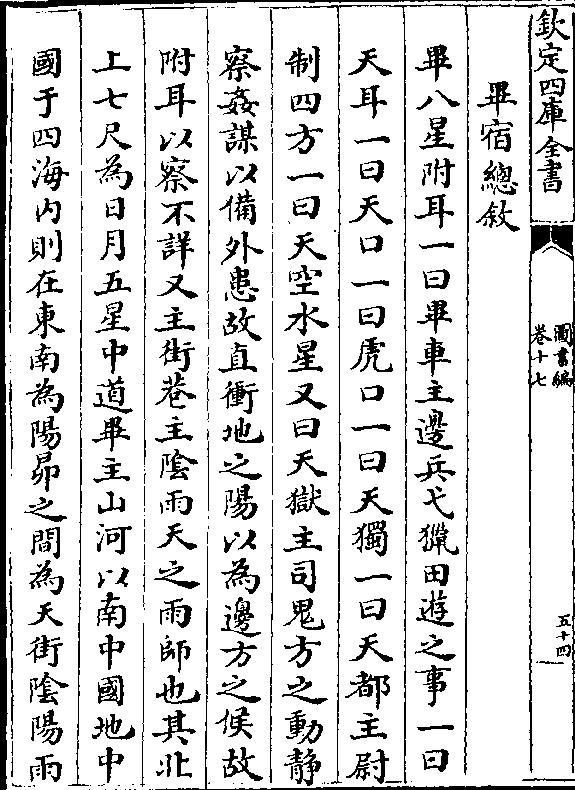 欽定四庫全書
圖書編
卷十七
五十四
畢宿總敘
畢八星附耳一曰畢車主邊兵弋獵田遊之事一曰
天耳一曰天口一曰虎口一曰天獨一曰天都主尉
制四方一曰天空水星又曰天獄主司鬼方之動靜
察姦謀以備外患故直衝地之陽以為邊方之候故
附耳以察不詳又主街巷主陰雨天之雨師也其北
上七尺為日月五星中道畢主山河以南中國地中
國于四海内則在東南為陽昴之間為天街陰陽雨